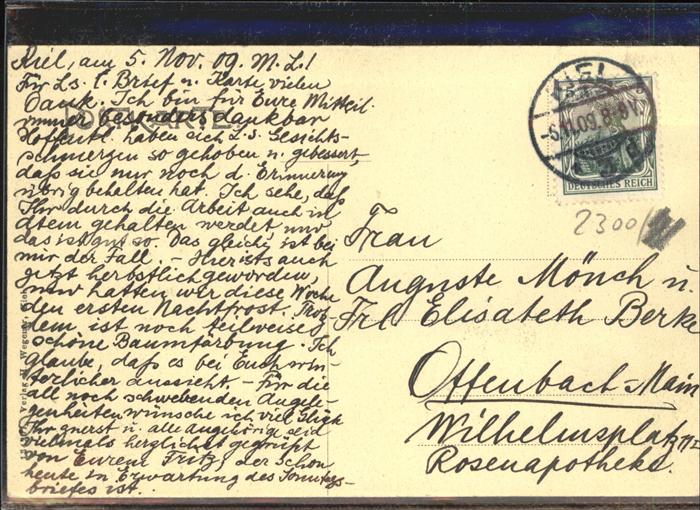 Kiel, am 5. Nov. 09. M. L.!
Für Ls. l. Brief u. Karte vielen
Dank. Ich bin für Eure Mitteil.
immer besonders dankbar
POSTKARTE
Hoffentl. haben sich L.s. Gesichts-
schmerzen so gehoben u. gebessert,
daß sie nur noch d. Erinnerung
übrig behalten hat. Ich sehe, daß
Ihr durch die Arbeit auch in
Atem gehalten werdet, nur
das ist gut so. Das gleiche ist bei
mir der Fall. – Hier ists auch
jetzt herbstlich geworden,
nur hatten wir diese Woche
den ersten Nachtfrost. Trotz
dem ist noch teilweise
schöne Baumfärbung. Ich
glaube, daß es bei Euch win-
terlicher aussieht. – Für die
all noch schwebenden Angele-
genheiten wünsche ich viel Glück
Ihr und u. alle Angehörige seid
vielmals herzlichst gegrüßt
von Eurem Fritz, der schon
heute in Erwartung des Sonntags-
briefes ist.
Verlag M. Wegener, Kiel
KIEL
-6.11.09. 8-9V.
DEUTSCHES REICH
2300
Frau
Auguste Mönch u.
Frl Elisabeth Berke
Offenbach-Main
Wilhelmsplatz
Rosenapotheke.